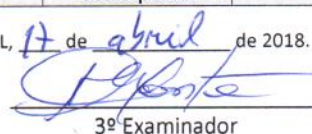 L, 17 de abril de 2018.
3º Examinador